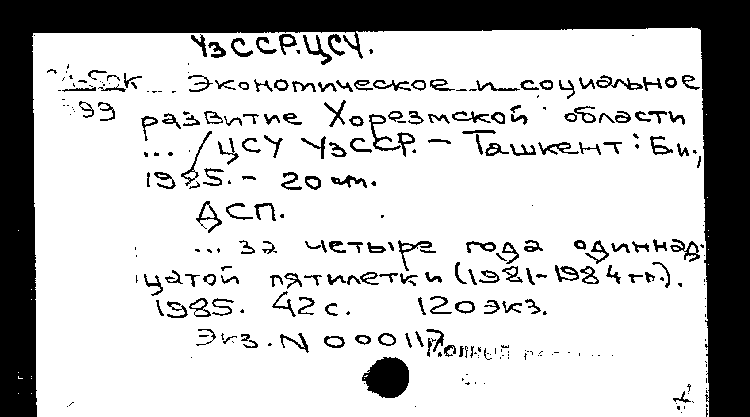 УзССР. ЦСУ.
Экономическое и социальное
99 развитие Хорезмской области
... / ЦСУ УзССР. - Ташкент: Б.и.,
1985. - 20 см.
ДСП.
... за четыре года одиннад-
цатой пятилетки (1981-1984 гг.).
1985. 42 с. 120 экз.
Экз. N 000117
Полный